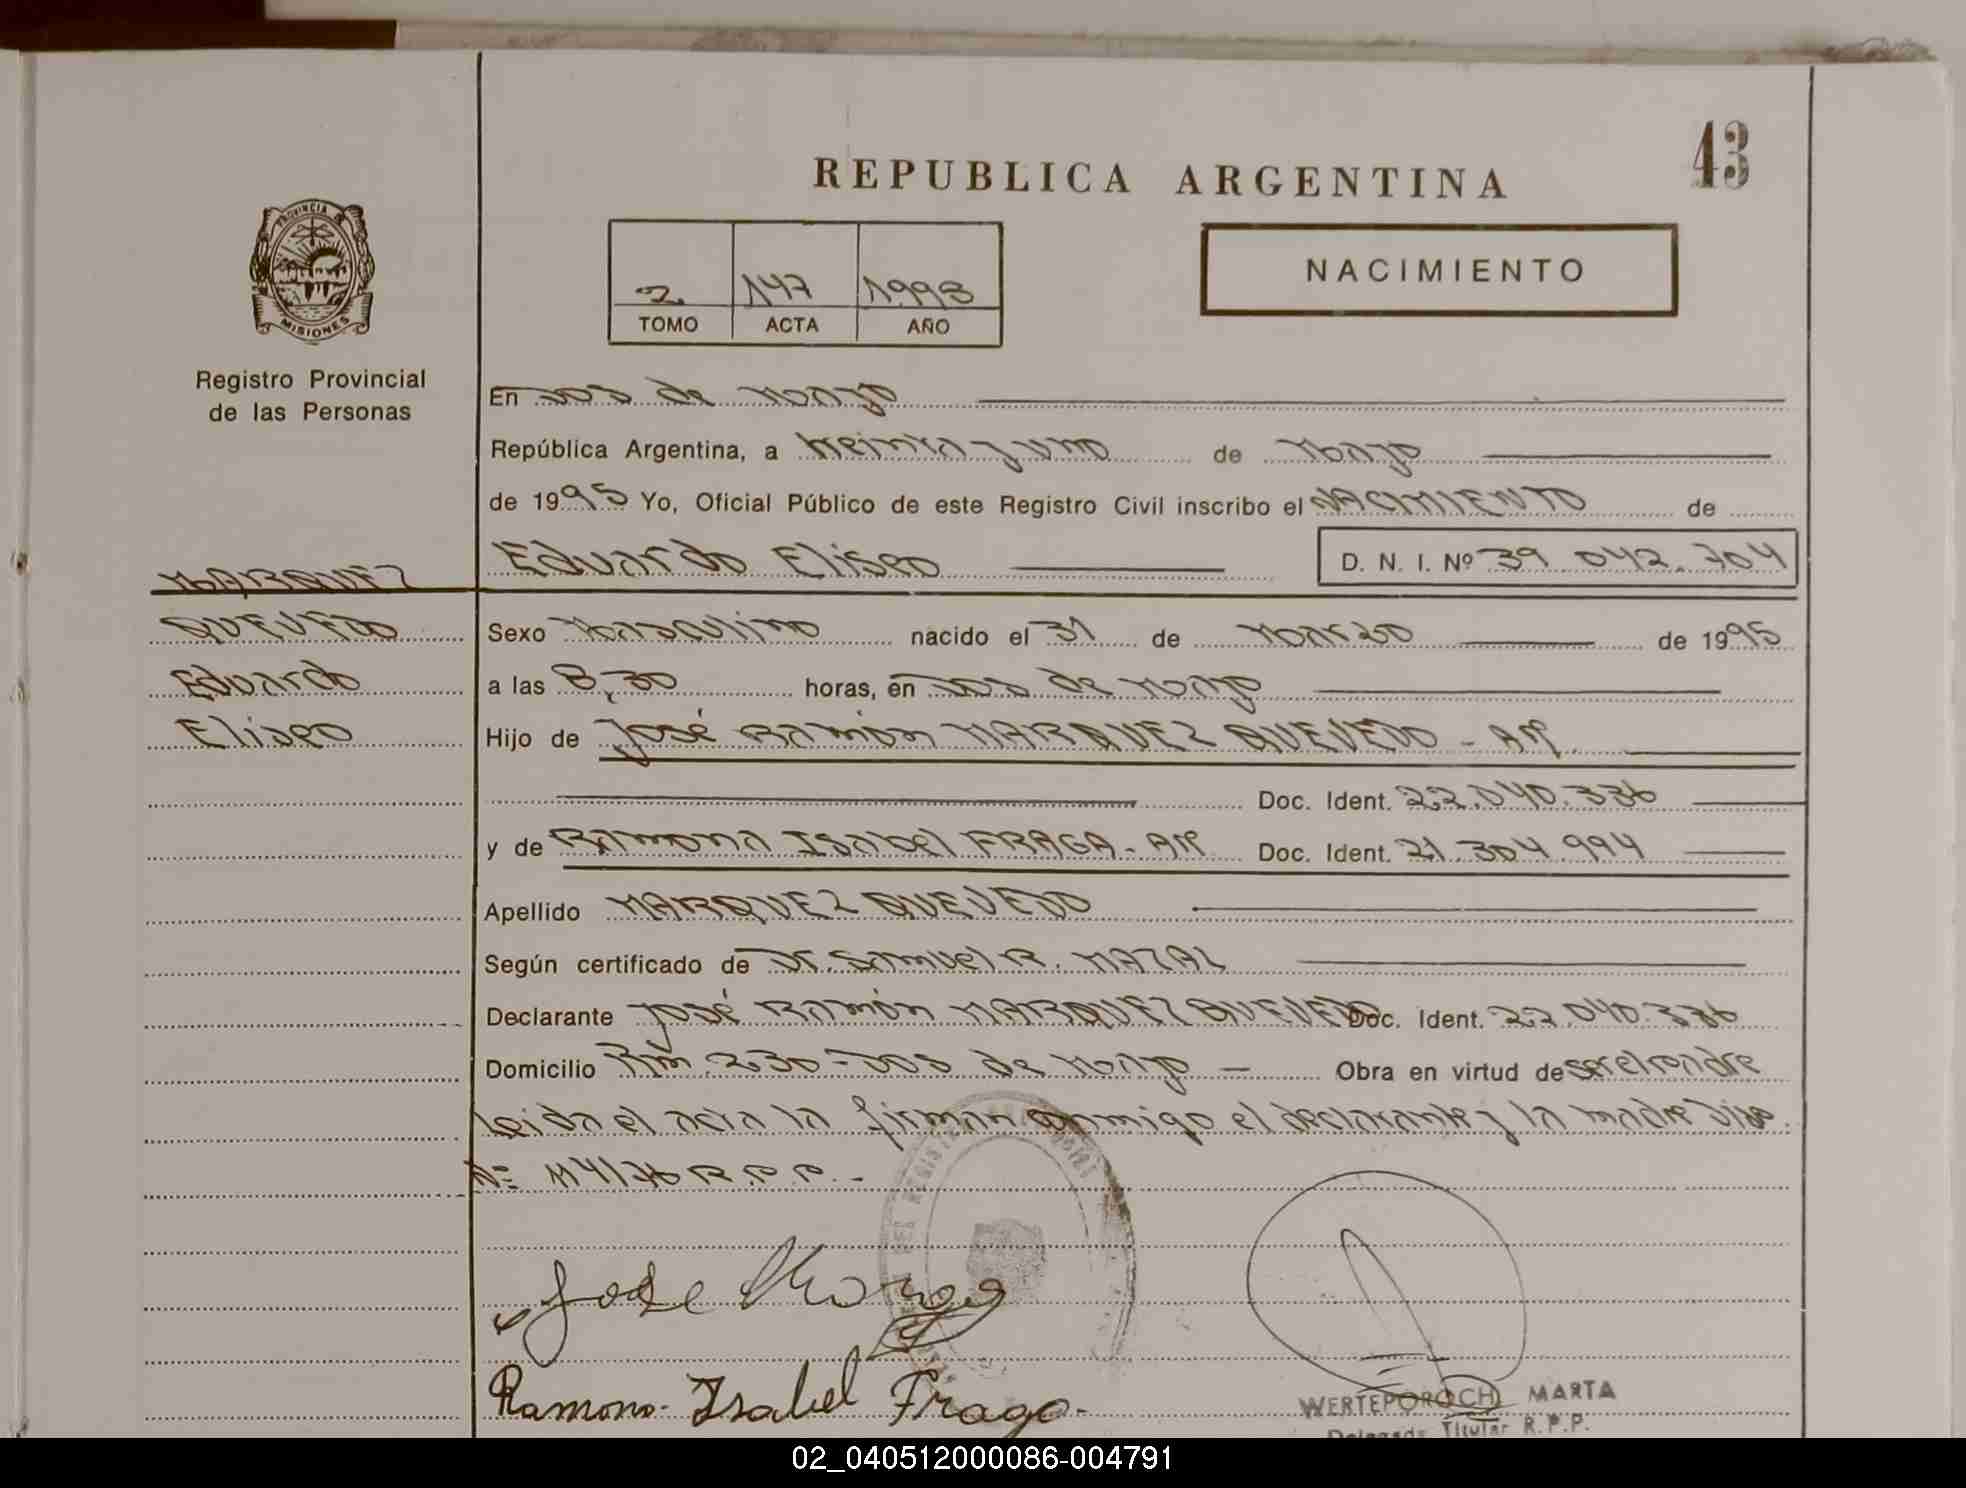 43
REPUBLICA ARGENTINA
PROVINCIA DE
MISIONES
NACIMIENTO
2 147 1998
TOMO ACTA AÑO
Registro Provincial
de las Personas
En Dos de Mayo
República Argentina, a treinta y uno de Mayo
de 1995 Yo, Oficial Público de este Registro Civil inscribo el NACIMIENTO de
Eduardo Eliseo D. N. I. Nº 39.042.704
MARQUEZ
QUEVEDO
Eduardo
Eliseo
Sexo Masculino nacido el 31 de Marzo de 1995
a las 8,30 horas, en Dos de Mayo
Hijo de José Ramón MARQUEZ QUEVEDO - Ar.
Doc. Ident. 22.040.336
y de Ramona Isabel FRAGA - Ar. Doc. Ident. 21.304.994
Apellido MARQUEZ QUEVEDO
Según certificado de Dr. Samuel R. MAZAL
Declarante José Ramón MARQUEZ QUEVEDO Doc. Ident. 22.040.336
Domicilio Km. 230 - Dos de Mayo - Obra en virtud de ser el padre
Leida el acta la firman conmigo el declarante y la madre Disp.
Nº 114/76 R.P.P. -
Jose
Ramona Isabel Fraga
WERTEPOROCH MARTA
Delegada Titular R.P.P.
02_040512000086-004791